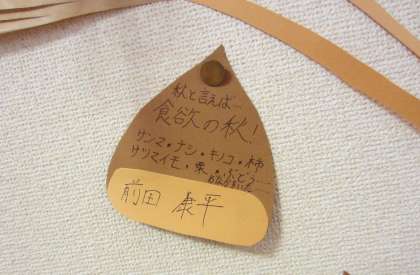 秋と言えば…
食欲の秋!
サンマ・ナシ・キノコ・柿
サツマイモ・栗・ぶどう…
前田 康平